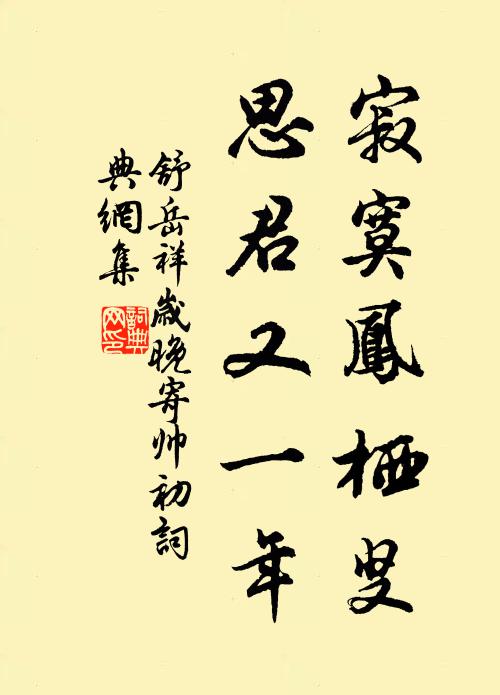 寂寞鳳栖叟
思君又一年
舒岳祥歲晚寄帅初詞
典網集
詞典网印